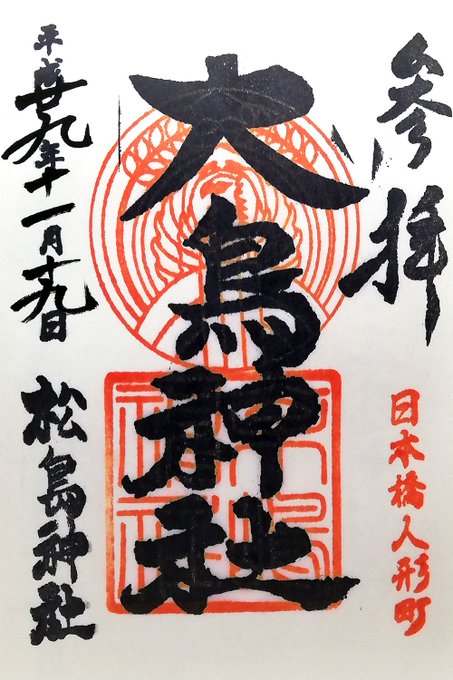 参拝
日本橋人形町
大鳥神社
平成廿九年十一月十九日
松島神社